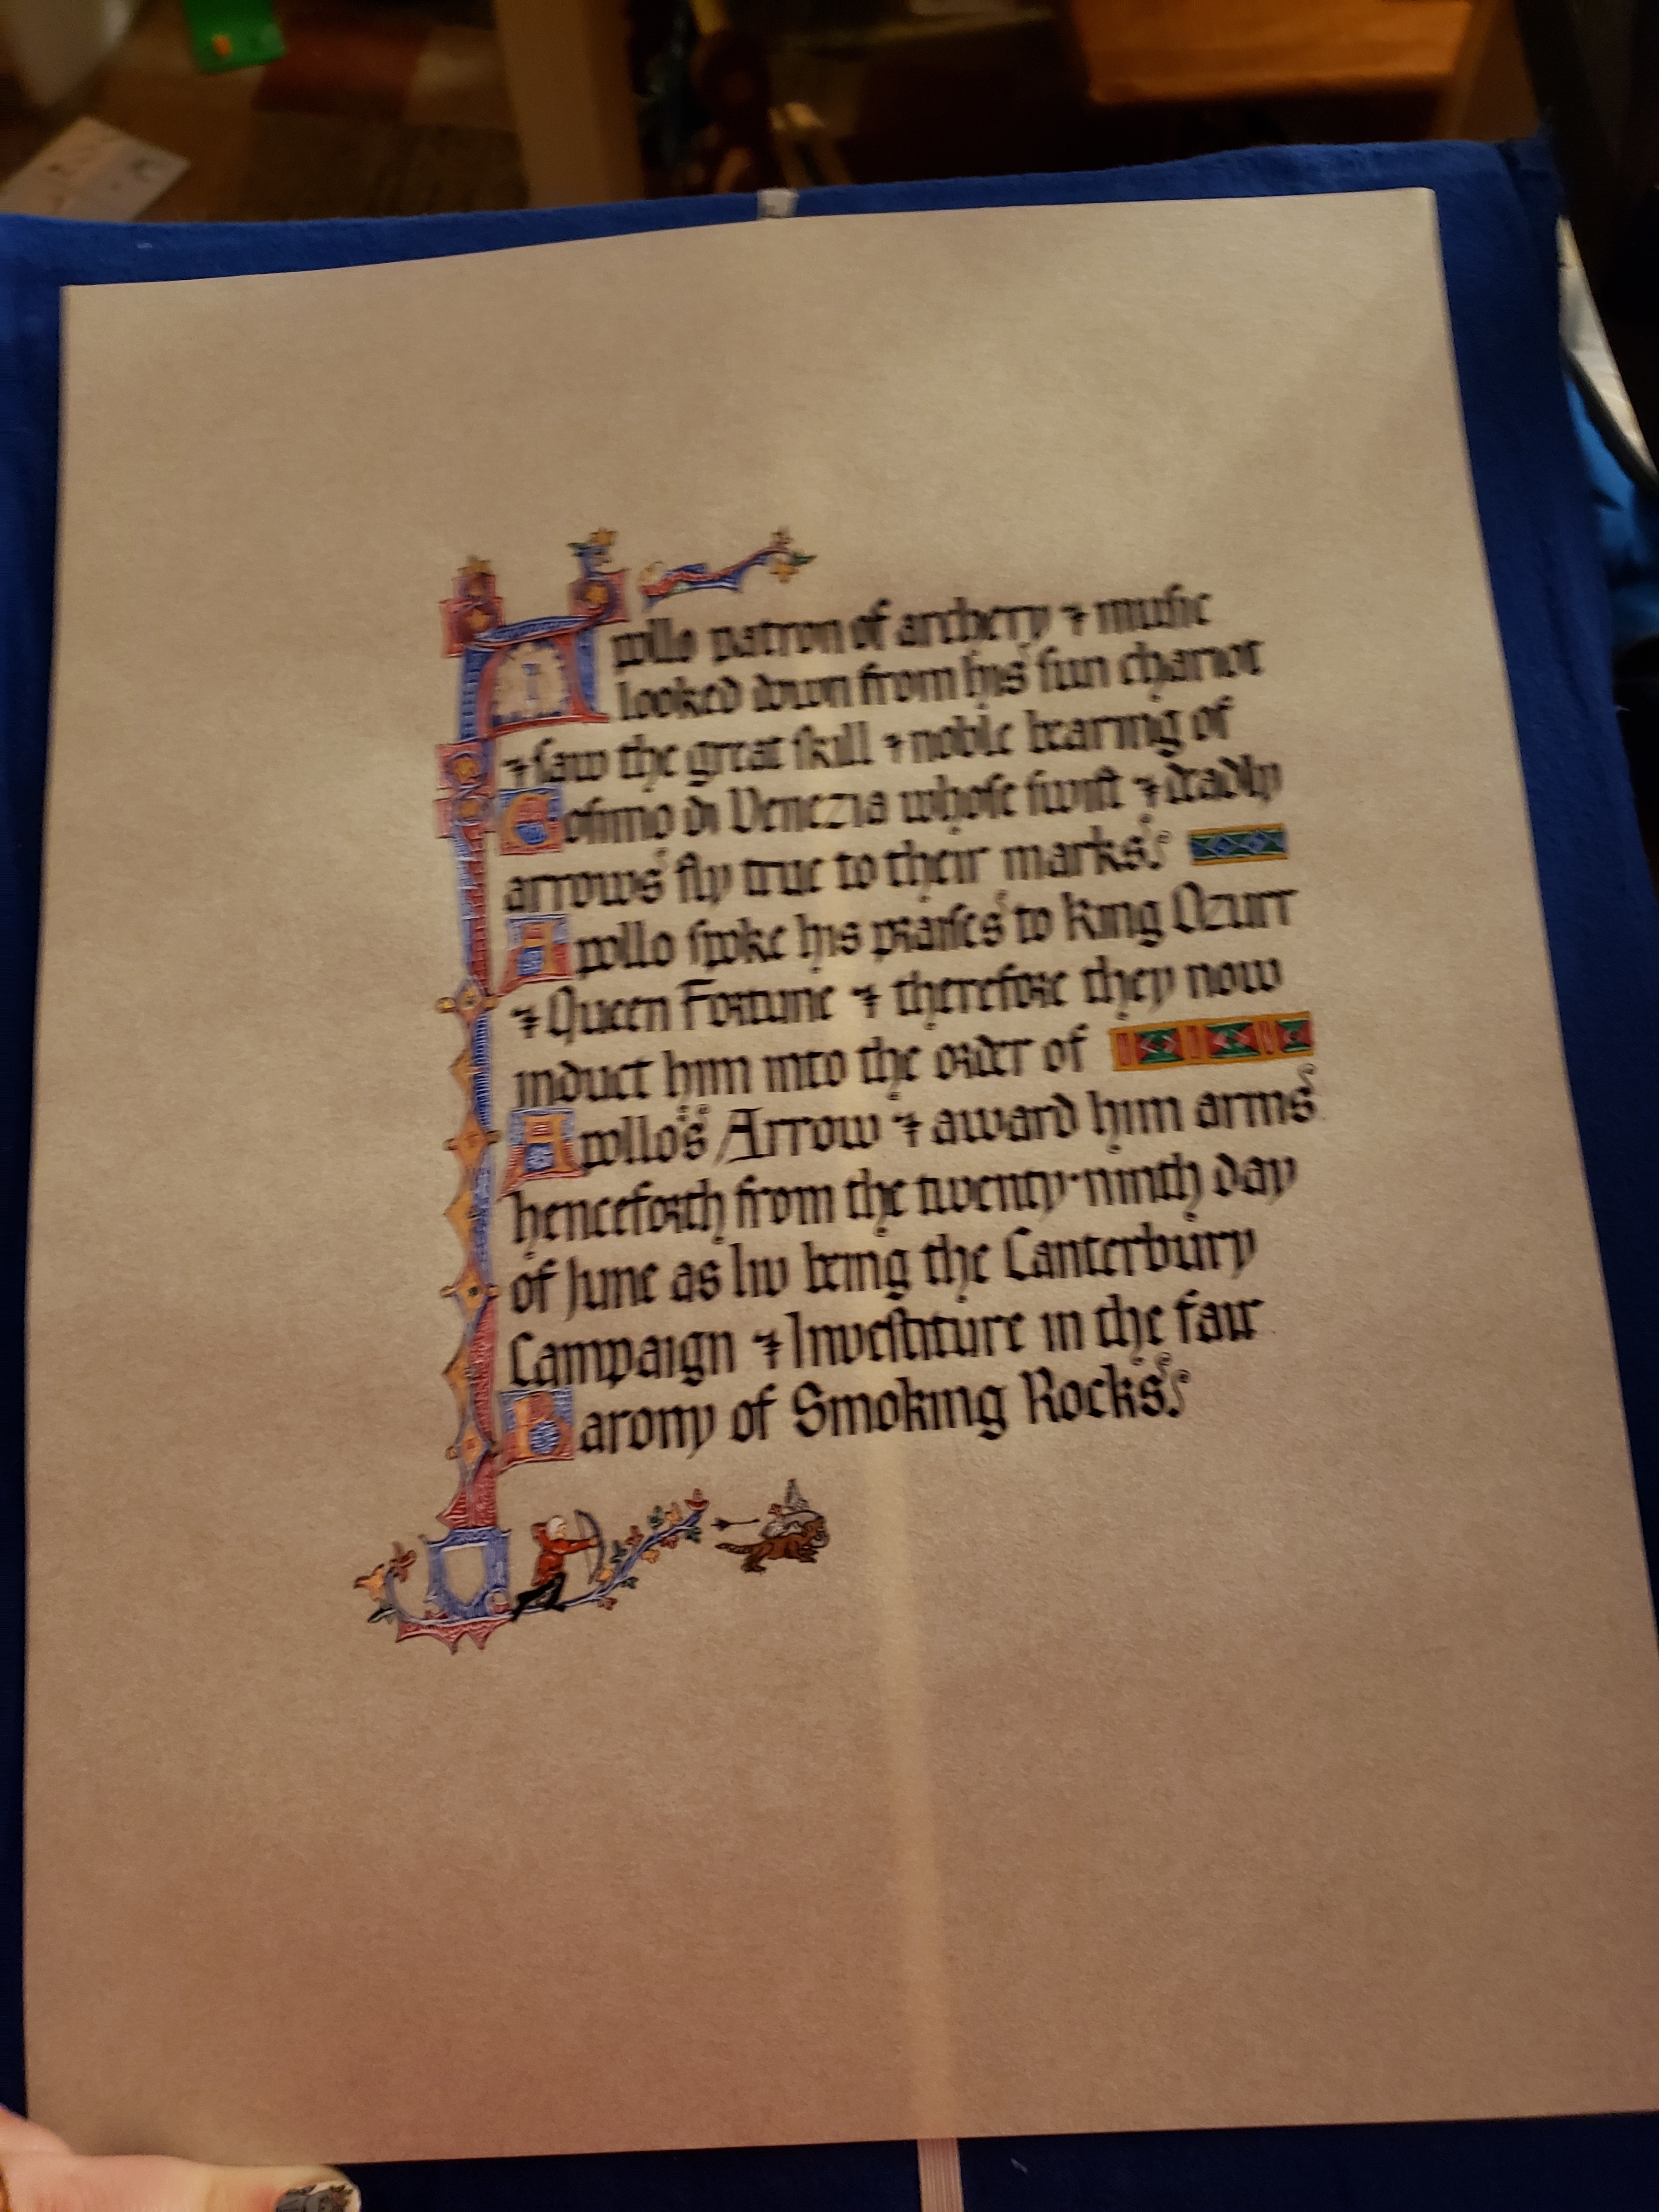 Apollo patron of archery ⁊ muſic
looked down from his ſun chariot
⁊ ſaw the great ſkill ⁊ noble bearing of
Coſimo di Venezia whoſe ſwift ⁊ deadly
arrows fly true to their marks.
Apollo ſpoke his praiſes to King Ozurr
⁊ Queen Fortune ⁊ therefore they now
induct him into the order of
Apollo's Arrow ⁊ award him arms
henceforth from the twenty-ninth day
of June as liv being the Canterbury
Campaign ⁊ Inveſtiture in the fair
Barony of Smoking Rocks.